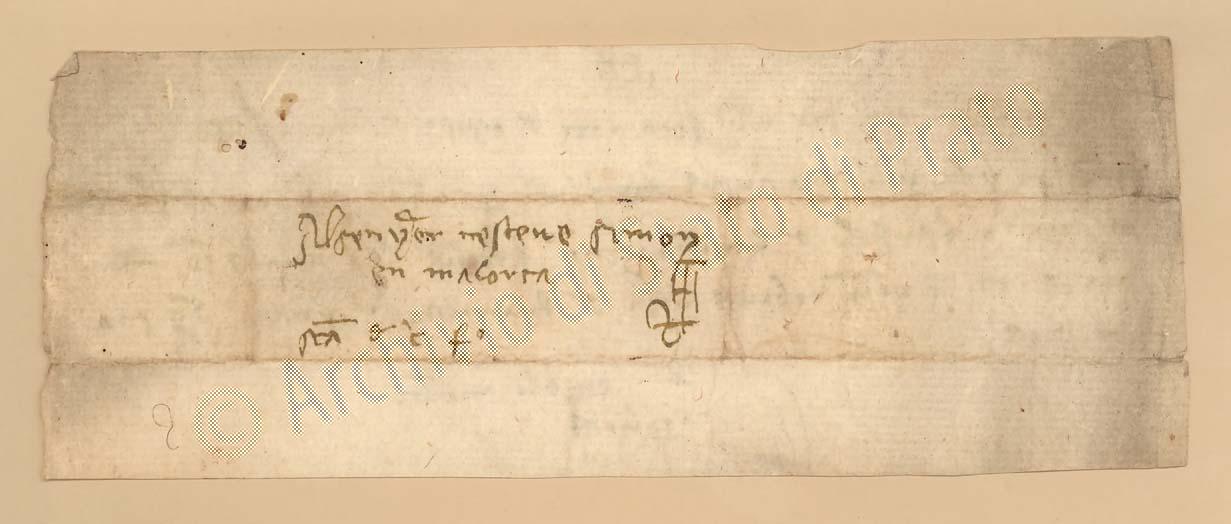 Al senyer nesteve simon
en malorca
© Archivio di Stato di Prato